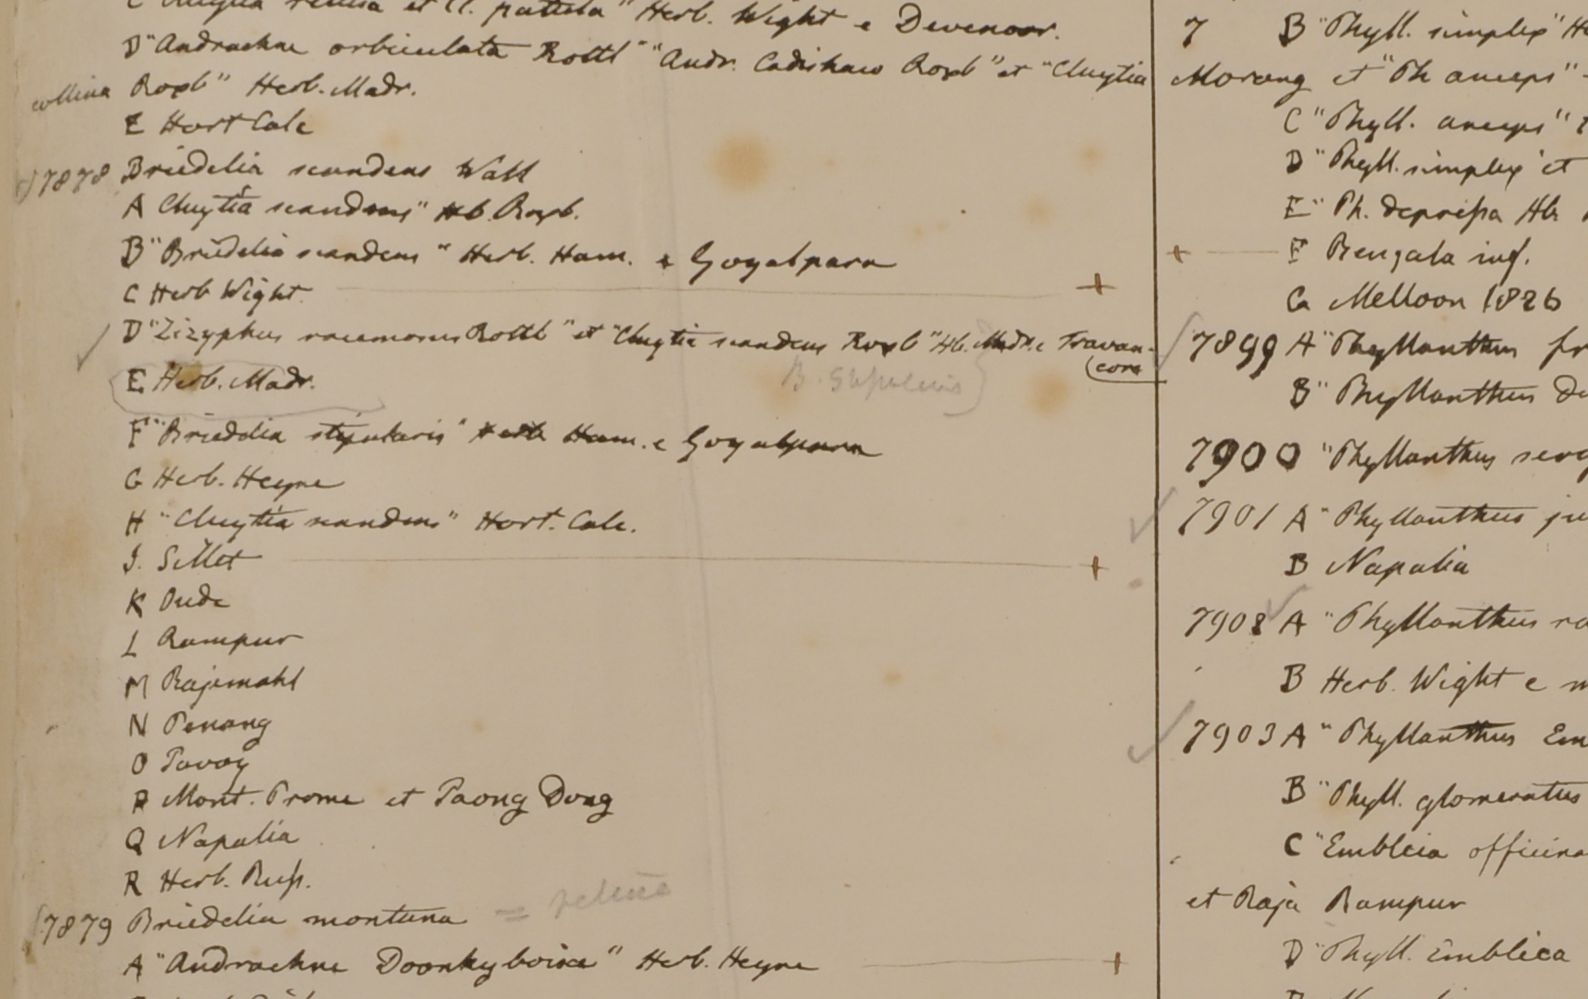 C retusa et Cl. patula" Herb. Wight e Devenoor.
D "Andrachne orbiculata Rottl" "Andr. Cadishaw Roxb" et "Cluytia
collina Roxb" Herb. Madr.
E Hort Calc
7878 Briedelia scandens Wall
A Cluytia scandens" Hb. Roxb.
B "Briedelia scandens" Herb. Ham. e Goyalpara
C Herb Wight +
D "Zizyphus racemosus Rottl" et "Cluytia scandens Roxb" Hb. Madr. e Travan-
core
E Herb. Madr. B. stipularis
F "Briedelia stipularis" Herb Ham. e Goyalpara
G Herb. Heyne
H "Cluytia scandens" Hort. Calc.
I. Sillet +
K Oude
L Rampur
M Rajemahl
N Penang
O Tavoy
P Mont. Prome et Taong Dong
Q Napalia
R Herb. Ruſs.
7879 Briedelia montana =
A "Andrachne Doonkyboica" Herb. Heyne +
7 B "Phyll. simplex"
Morong et "Ph anceps"
C "Phyll. anceps"
D "Phyll. simplex et
E "Ph. depreſsa Hb
+ F Bengala inf.
G Melloon 1826
7899 A "Phyllanthus
B "Phyllanthus
7900 "Phyllanthus
7901 A "Phyllanthus
B Napalia
7902 A "Phyllanthus
B Herb. Wight e
7903 A "Phyllanthus Em
B "Phyll. glomeratus
C "Emblica officina
et Raja Rampur
D "Phyll. Emblica